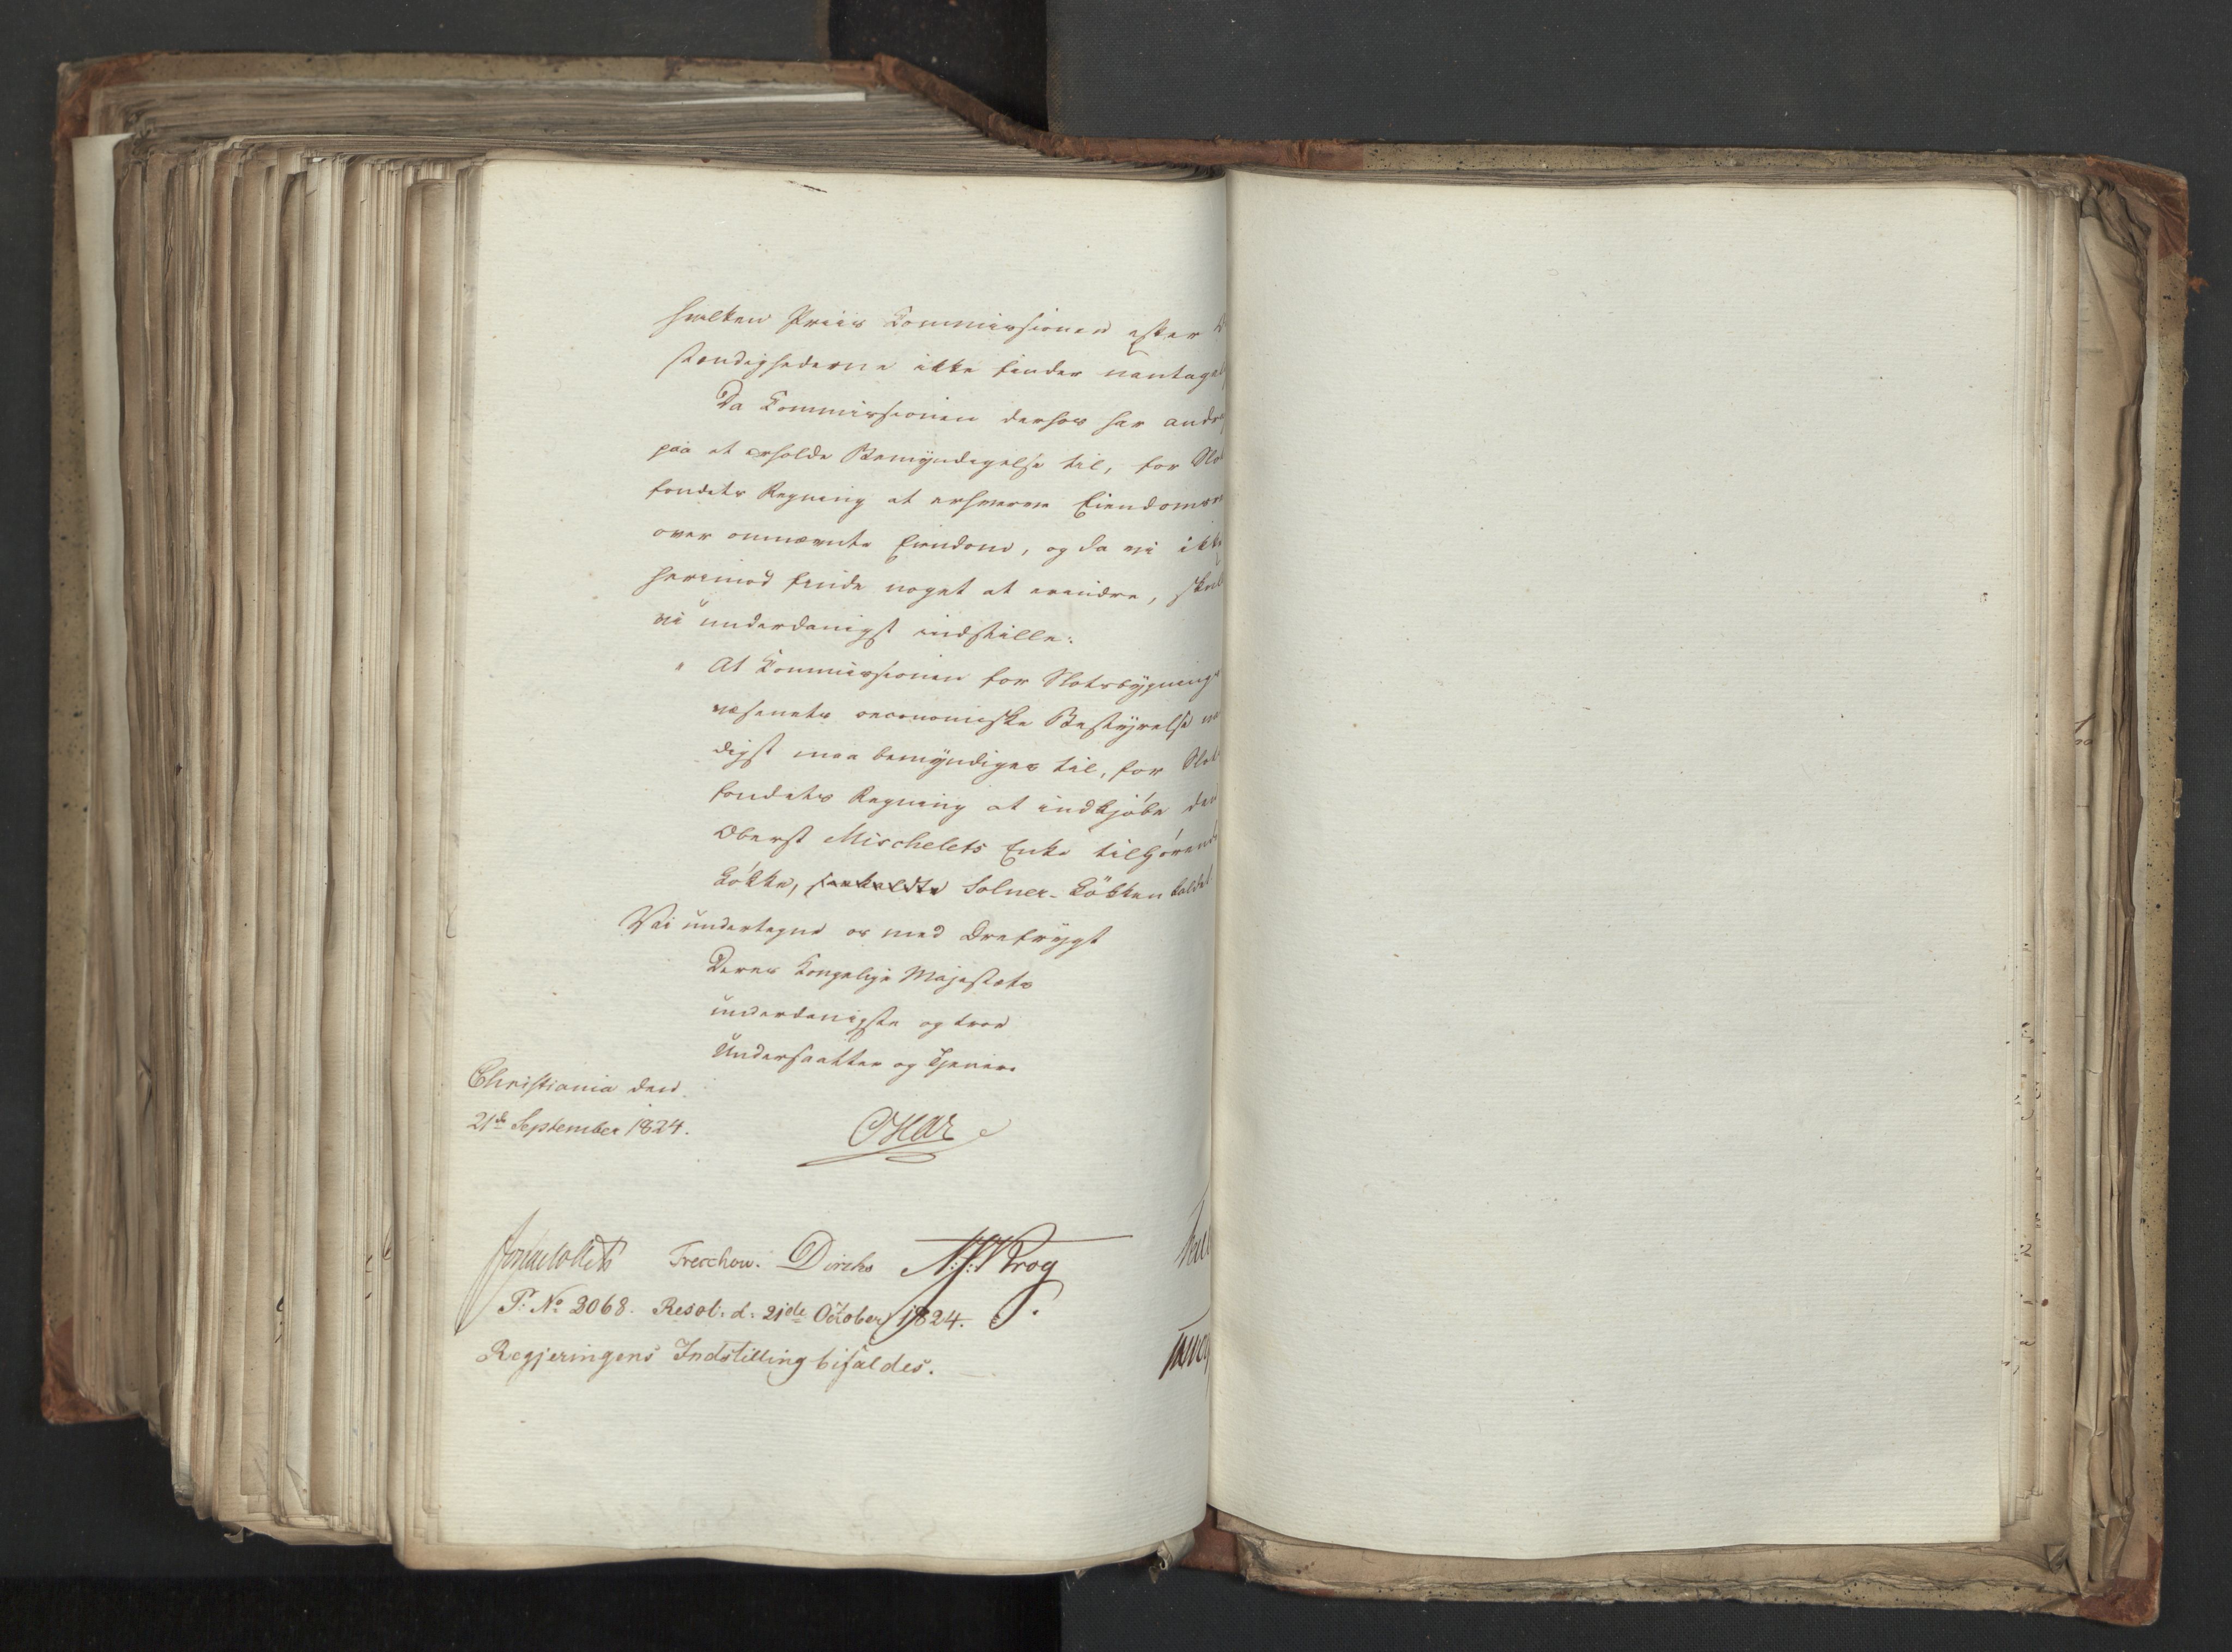 hvilken Priis Kommissionen efter
stændighederne ikke finder uantagel
Da Kommissionen derhos har andr
paa at erholde Bemyndigelse til, for Slo
fondets Regning at erhverve Eiendoms
over omnævnte Eiendom, og da vi ikke
herimod finde noget at erindre, skul
vi underdanigst indstille:
" At Kommissionen for Slotsbygnings
væsenets oeconomiske Bestyrelse na
digst maa bemyndiges til, for Slots
fondets Regning at indkjøbe den
Oberst Mischelets Enke tilhørende
Løkke, saakaldte Solner-Løkken kaldet.
Vi undertegne os med Ærefrygt
Deres Kongelige Majestæts
underdanigste og troe
Undersaatter og Tjenere
Christiania den
21de September 1824.
Oscar
Jonas Collett Treschow. Diriks N:J:Krog
P: No 2068. Resol: d. 21de October 1824.
Regjeringens Indstilling bifaldes.